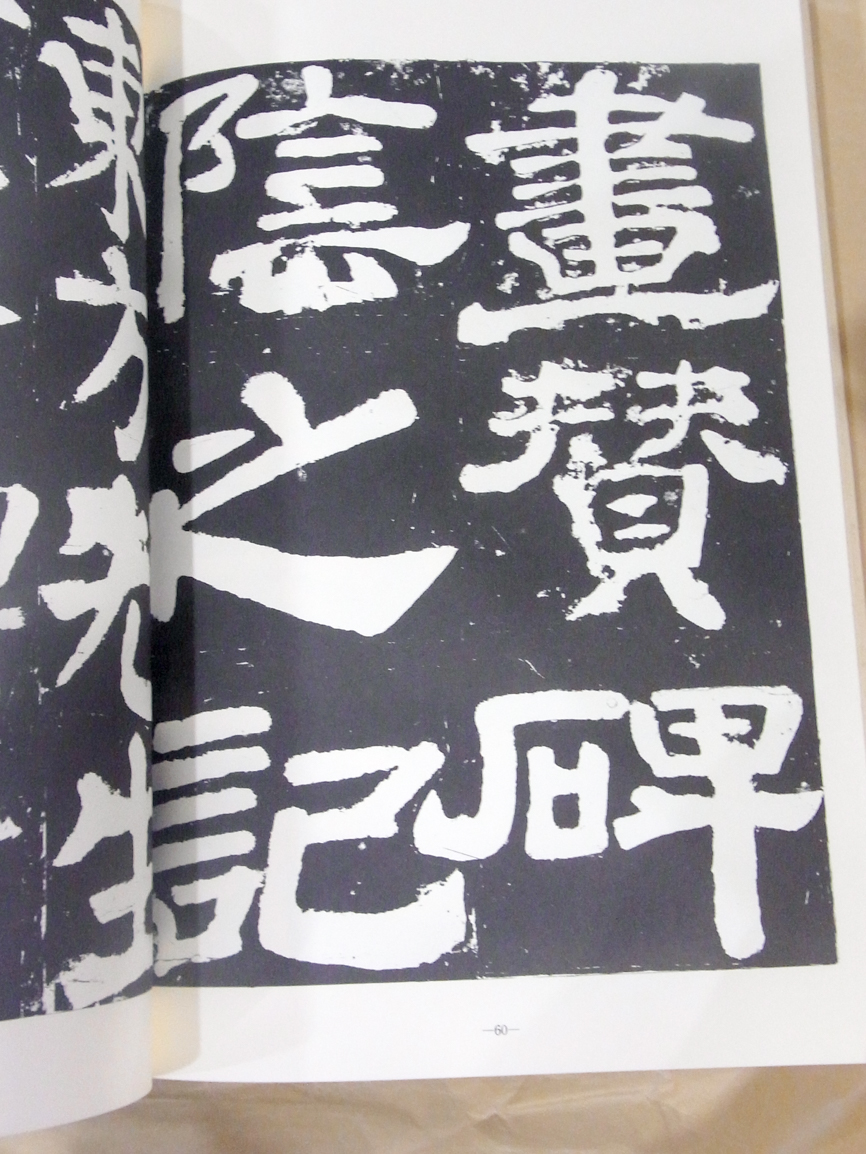 畫贊碑
陰之記
東方先生
—60—